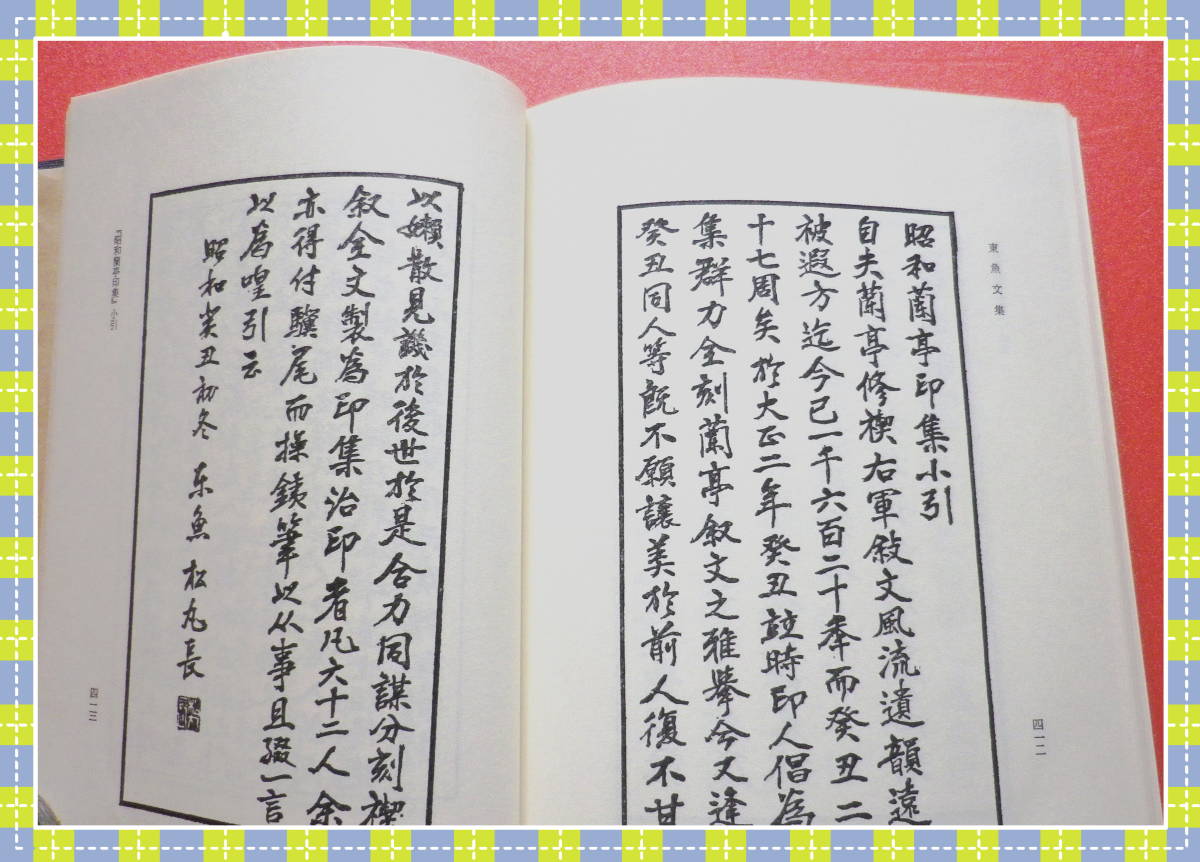 東魚文集
昭和蘭亭印集小引
自夫蘭亭修禊右軍敍文風流遺韻遠
被遐方迄今已一千六百二十年而癸丑二
十七周矣於大正二年癸丑the時印人倡為
集群力全刻蘭亭叙文之雅擧今又逢
癸丑同人等既不願讓美於前人復不甘
四一二
以嬾散見譏於後世於是合力同謀分刻禊
叙全文製為印集治印者凡六十二人余
亦得付驥尾而操銕筆以从事且綴一言
以為喤引云
昭和癸丑初冬 东魚 松丸長
『昭和蘭亭印集』小引
四一三